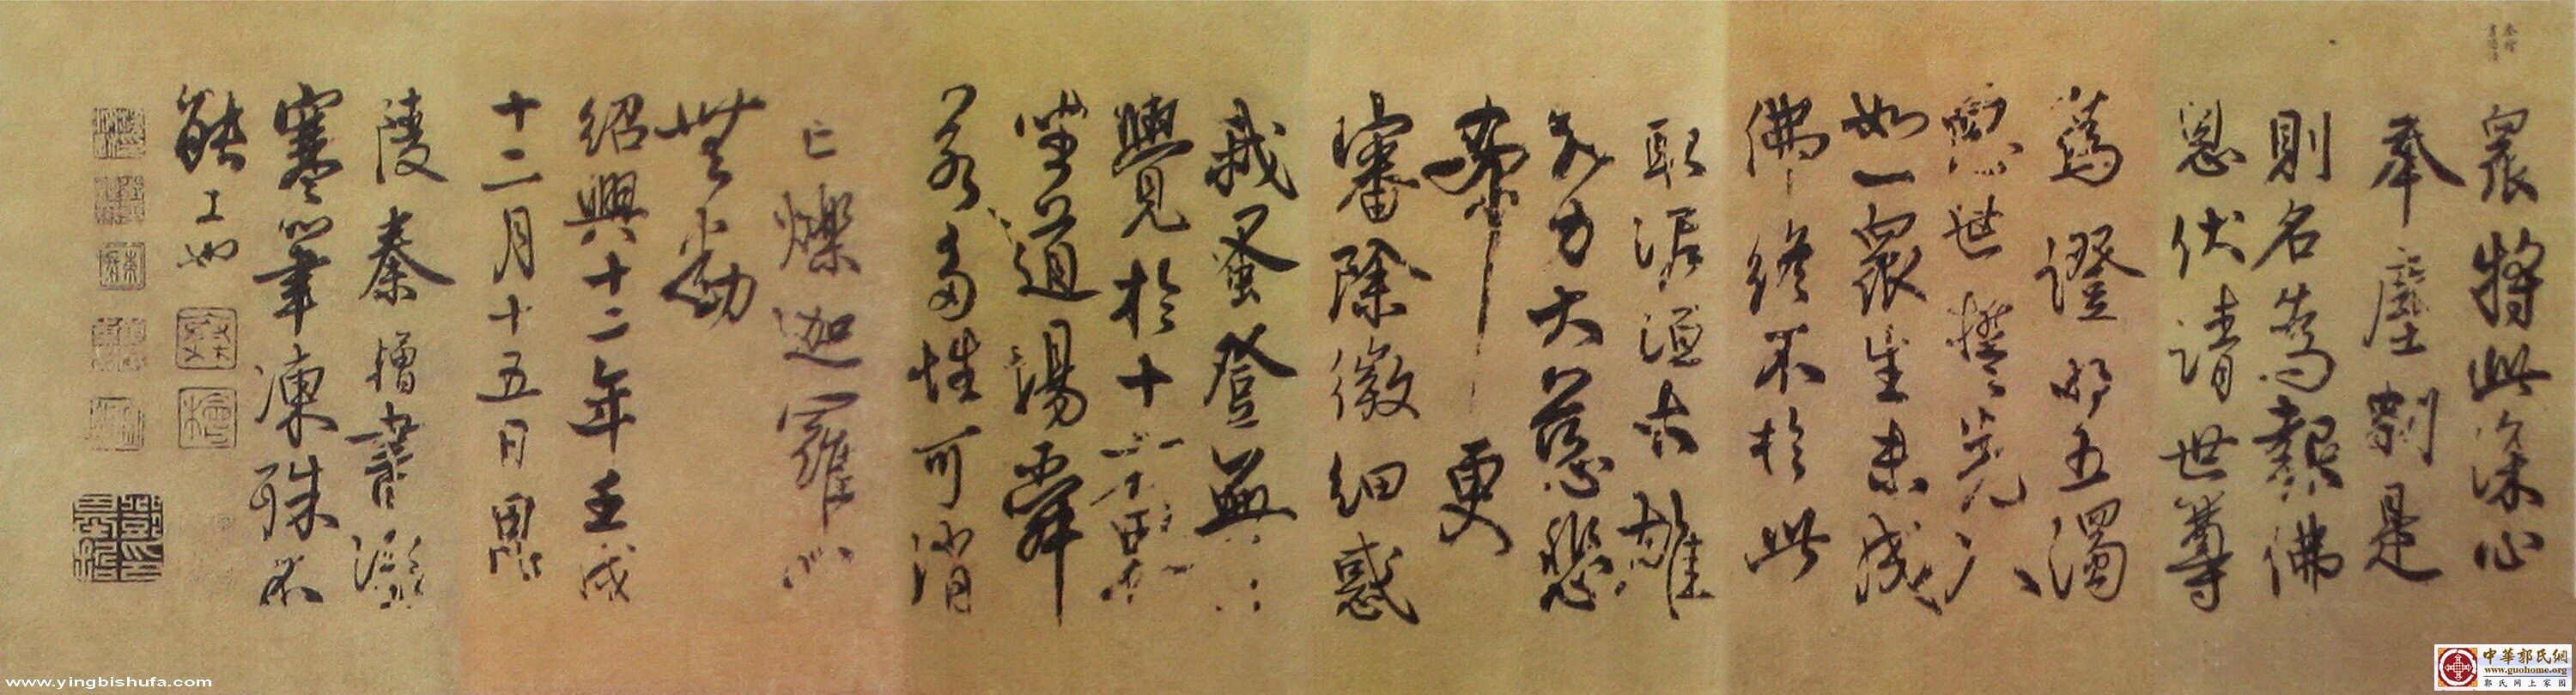 眾將此深心
奉塵剎是
則名為報佛
恩伏請世尊
為證明五濁
惡世誓先入
如一眾生未成
佛終不於此
取泥洹大雄
大力大慈悲
希更
審除微細惑
我蚤登無上
覺於十方界
坐道場舜
若多性可消
亡爍迦羅心
無動
紹興十二年壬戌
十二月十五日
陵秦檜書
寒筆凍殊不
能工也
www.yingbishufa.com
中華郭氏網
www.guohome.org
郭氏网上家园